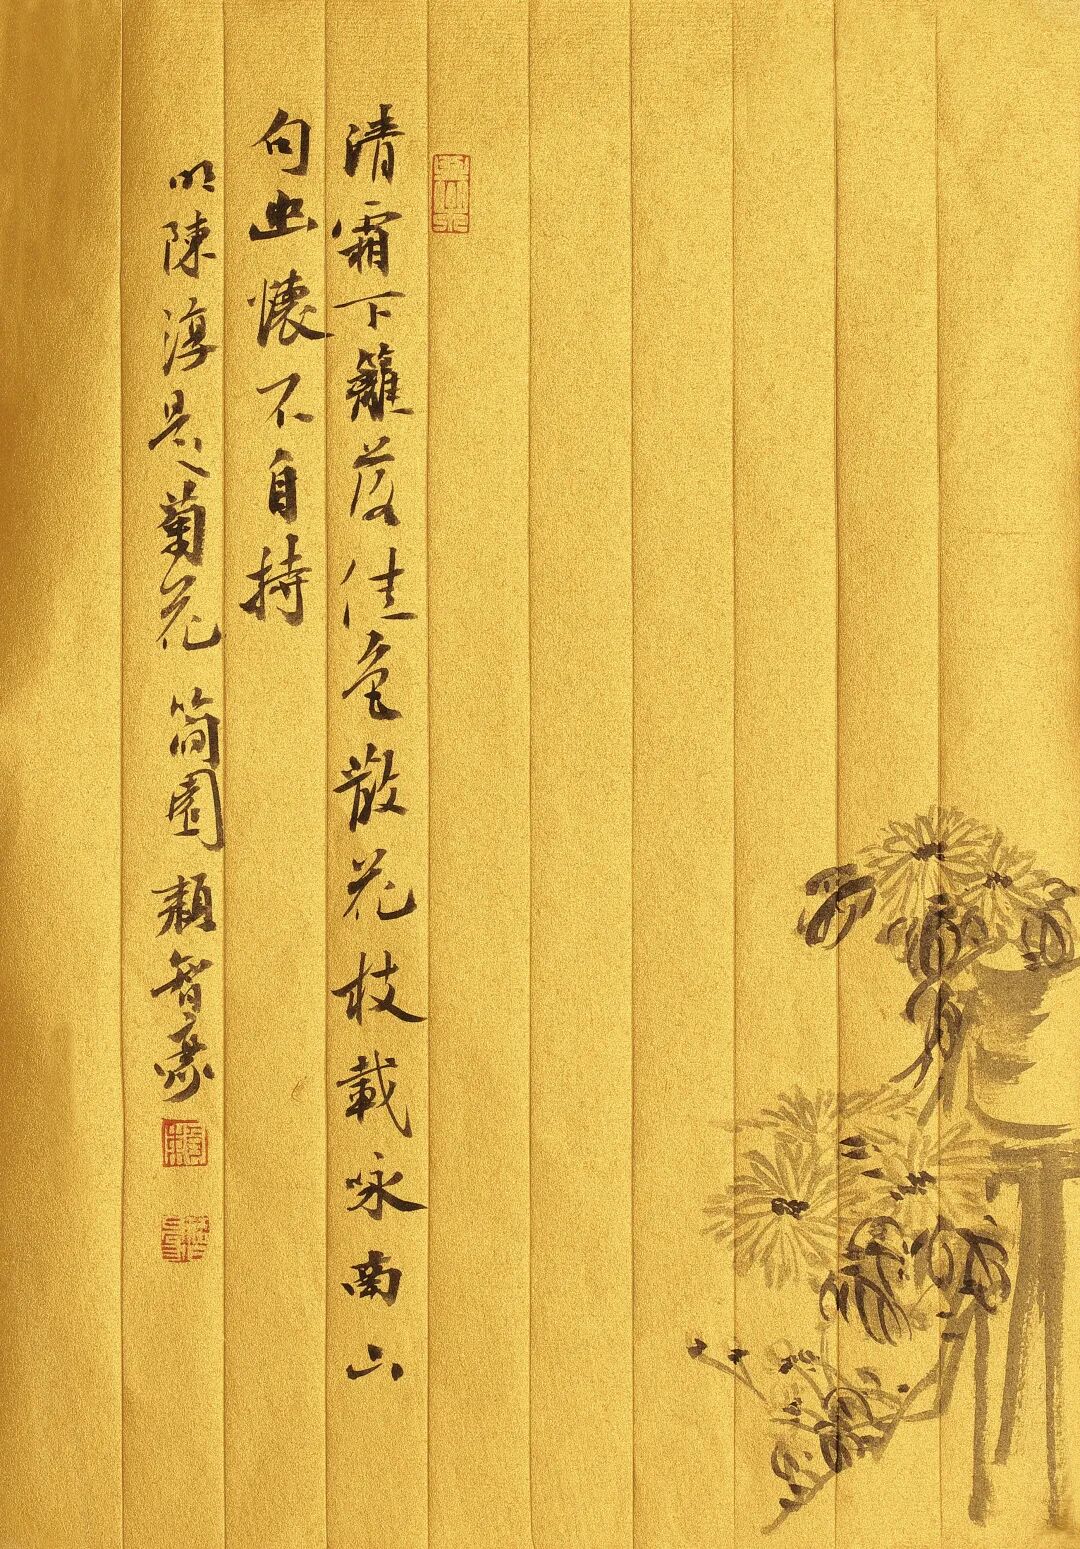 清霜下籬落佳色散花枝載咏南山
句幽懷不自持
明陳淳題菊花 简園 賴智康